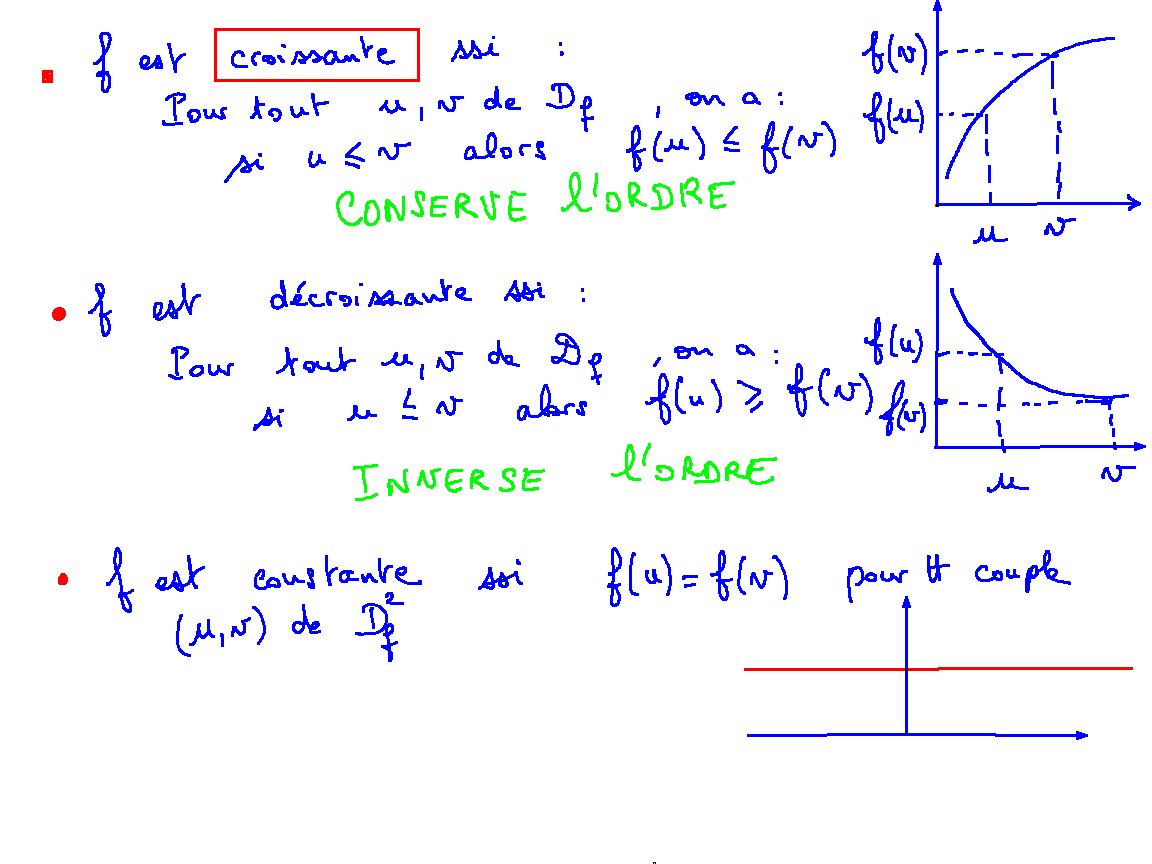 f est croissante ssi :
Pour tout u, v de Df, on a :
si u ≤ v alors f(u) ≤ f(v)
CONSERVE l'ORDRE
f(v)
f(u)
u v
f est décroissante ssi :
Pour tout u, v de Df, on a :
si u ≤ v alors f(u) ≥ f(v)
INVERSE l'ORDRE
f(u)
f(v)
u v
f est constante ssi f(u) = f(v) pour tt couple
(u, v) de Df²